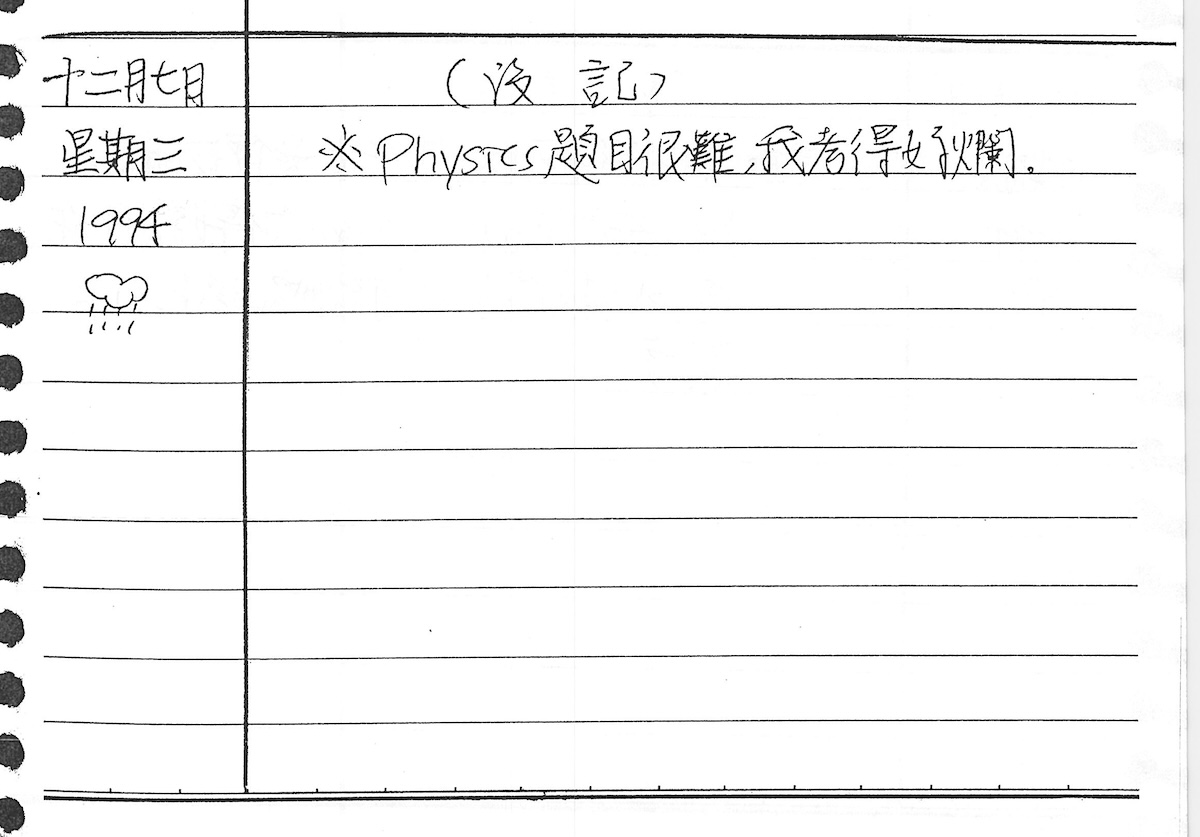 十二月七日
(没 記)
星期三
※ Physics 題目很難,我考得好爛.
1994